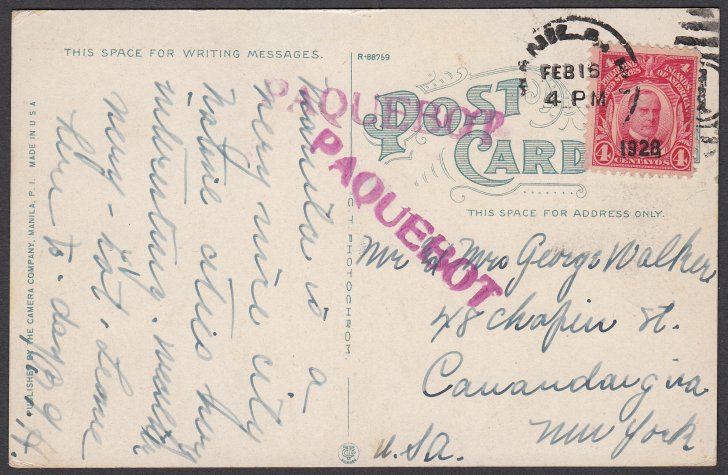 THIS SPACE FOR WRITING MESSAGES.
R-88759
POST CARD
THIS SPACE FOR ADDRESS ONLY.
MANILA, P.I.
FEB 15
4 PM
1928
PHILIPPINE ISLANDS
UNITED STATES OF AMERICA
4 CENTAVOS 4
PAQUEBOT
PAQUEBOT
Manila is a
very nice city
Native cities very
interesting. weather
very - hot. Leave
here to-day
Mr & Mrs George Walker
48 Chapin St.
Canandaigua
New York
U.S.A.
PUBLISHED BY THE CAMERA COMPANY, MANILA, P. I. MADE IN U S A
CT PHOTOCHROM